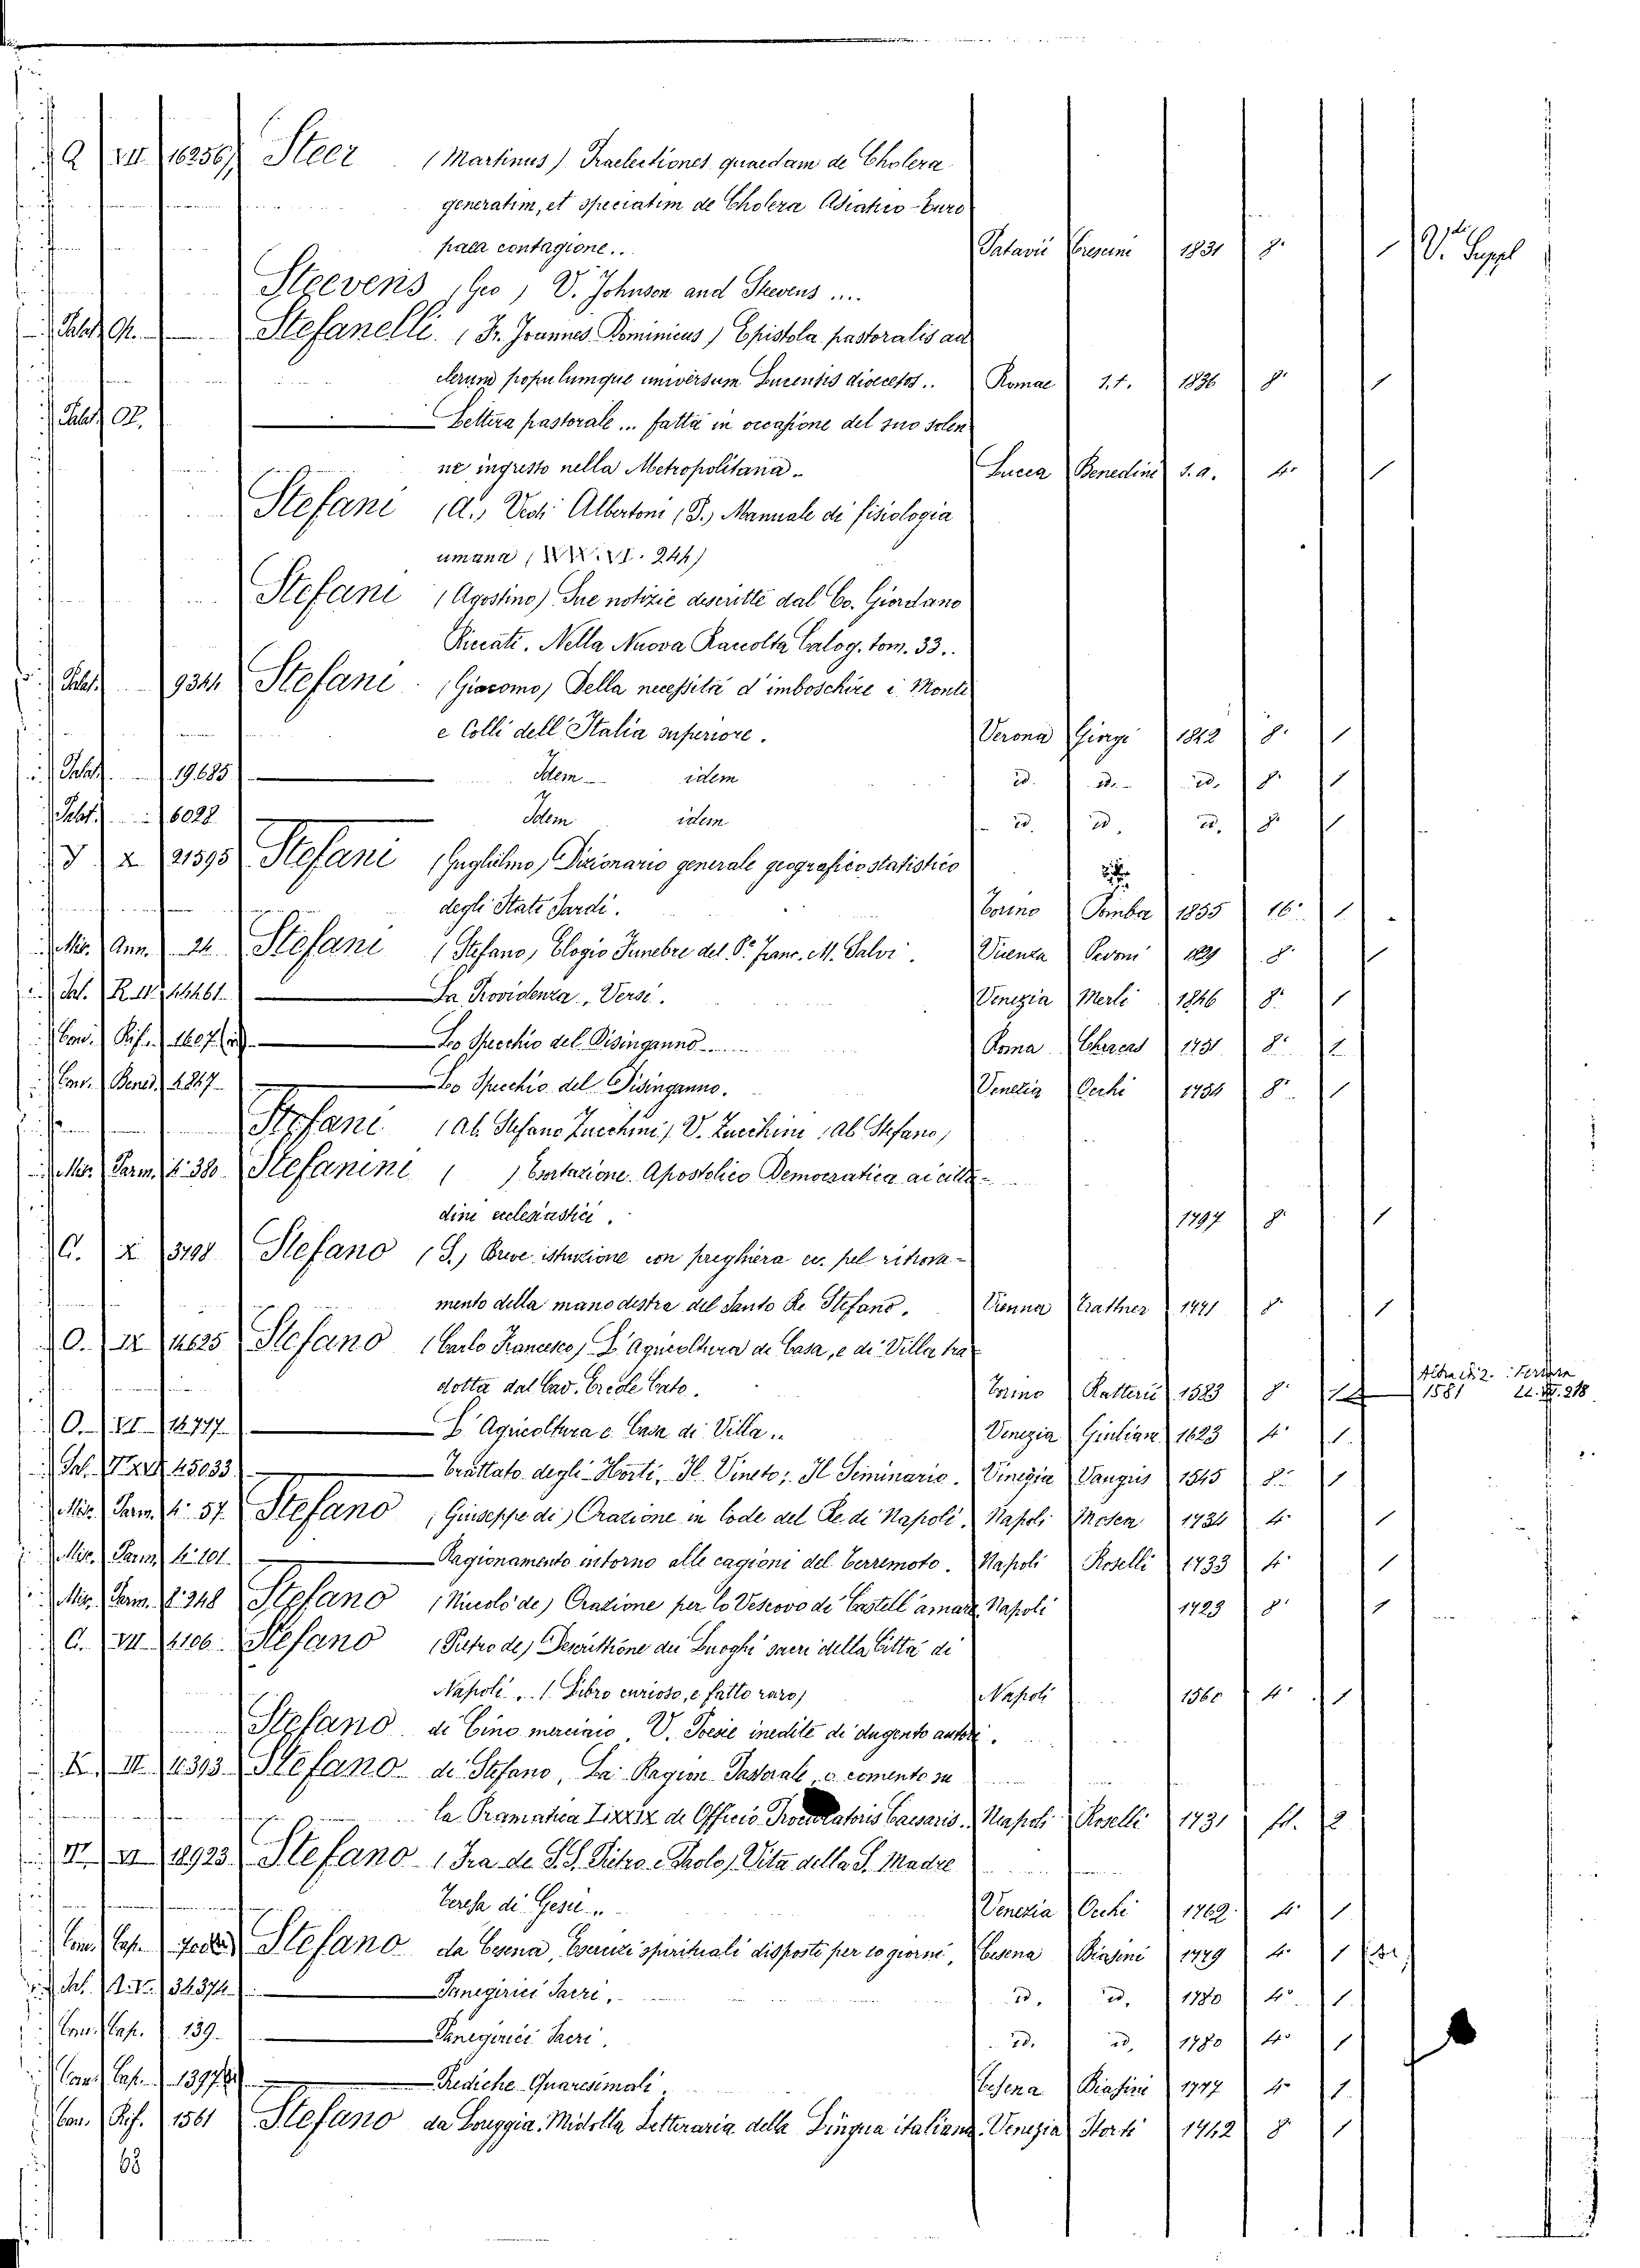 Q VII 16256 Steer (Martinus) Praelectiones quaedam de Cholera
generatim, et speciatim de Cholera Asiatico-Euro
paea contagione.. Patavii Crescini 1831 8° 1 V. Suppl
Steevens (Geo) V. Johnson and Stevens ....
Stefanelli (Fr. Joannes Dominicus) Epistola pastoralis ad
clerum populumque universum Lucensis dioecetos.. Romae s.t. 1836 8° 1
Lettera pastorale ... fatta in occasione del suo solen
ne ingresso nella Metropolitana. Lucca Benedini s.a. 4° 1
Stefani (A.) Vedi Albertoni (P.) Manuale di fisiologia
umana
Stefani (Agostino) Sue notizie descritte dal Co. Giordano
Riccati. Nella Nuova Raccolta Calog. tom. 33..
934 Stefani (Giacomo) Della necessità d'imboschire i Monti
e Colli dell'Italia superiore. Verona 1842 8° 1
19685 Idem idem id. id. id. 8° 1
6028 Idem idem id. id. id. 8° 1
21595 Stefani (Guglielmo) Dizionario generale geografico statistico
degli Stati Sardi. Torino Pomba 1855 16° 1
Mis. Ann. 24 Stefani (Stefano) Elogio Funebre del P. Franc. M. Salvi. Vicenza 8° 1
La Providenza, Versi. Venezia Merlo 1846 8° 1
Lo Specchio del Disinganno Roma Chracas 1731 8°
4847 Lo Specchio del Disinganno. Venezia Occhi 1734 8° 1
Stefani (Ab. Stefano Zucchini) V. Zucchini (Ab. Stefano)
Stefanini ( ) Esortazione Apostolico Democratica ai citta-
dini ecclesiastici. 1797 8° 1
C. X 3798 Stefano (S.) Breve istruzione con preghiera ec. pel ritrova-
mento della mano destra del Santo Re Stefano. Vienna Trattner 1771 8° 1
O. IX Stefano (Carlo Francesco) L'Agricoltura di Casa, e di Villa tra
dotta dal Cav. Ercole Cato. Torino Ratteri 1583 8° 1581
O. VI 14717 L'Agricoltura e Casa di Villa.. Venezia Giuliani 1623 4° 1
45033 Trattato degli Horti, Il Vineto; Il Seminario. Vinegia Vaugris 1545 8° 1
57 Stefano (Guiseppe di) Orazione in lode del Re di Napoli. Napoli Mosca 1734 4° 1
101 Ragionamento intorno alle cagioni del Terremoto. Napoli Roselli 1733 4° 1
348 Stefano (Nicolò de) Orazione per lo Vescovo di Castell'amare Napoli 1729 8° 1
C. VII 4106 Stefano (Pietro de) Descrittione dei Luoghi sacri della Città di
Napoli ... (Libro curioso, e fatto raro) Napoli 1560 4° 1
Stefano di Cino merciaio V. Poesie inedite di dugento autori.
K. III 4393 Stefano di Stefano, La Ragion Pastorale, o comento su
la Pramatica LXXIX de Officio Procuratoris Caesaris. Napoli Roselli 1731 fol. 2
18923 Stefano (Fra de S.S. Pietro e Paolo) Vita della S. Madre
Teresa di Gesù .. Venezia Occhi 1762 4° 1
Stefano da Cesena, Esercizi spirituali disposti per 10 giorni, Cesena Biasini 1779 4° 1
34374 Panegirici Sacri. id. id. 1780 4° 1
Con. Cap. 139 Panegirici Sacri. id. id. 1780 4° 1
Con. Cap. 1397 Prediche Quaresimali. Cesena Biasini 1777 4° 1
Con. Rif. 1561 Stefano da Loreggia. Midolla Letteraria della Lingua italiana. Venezia Storti 1742 8° 1
68